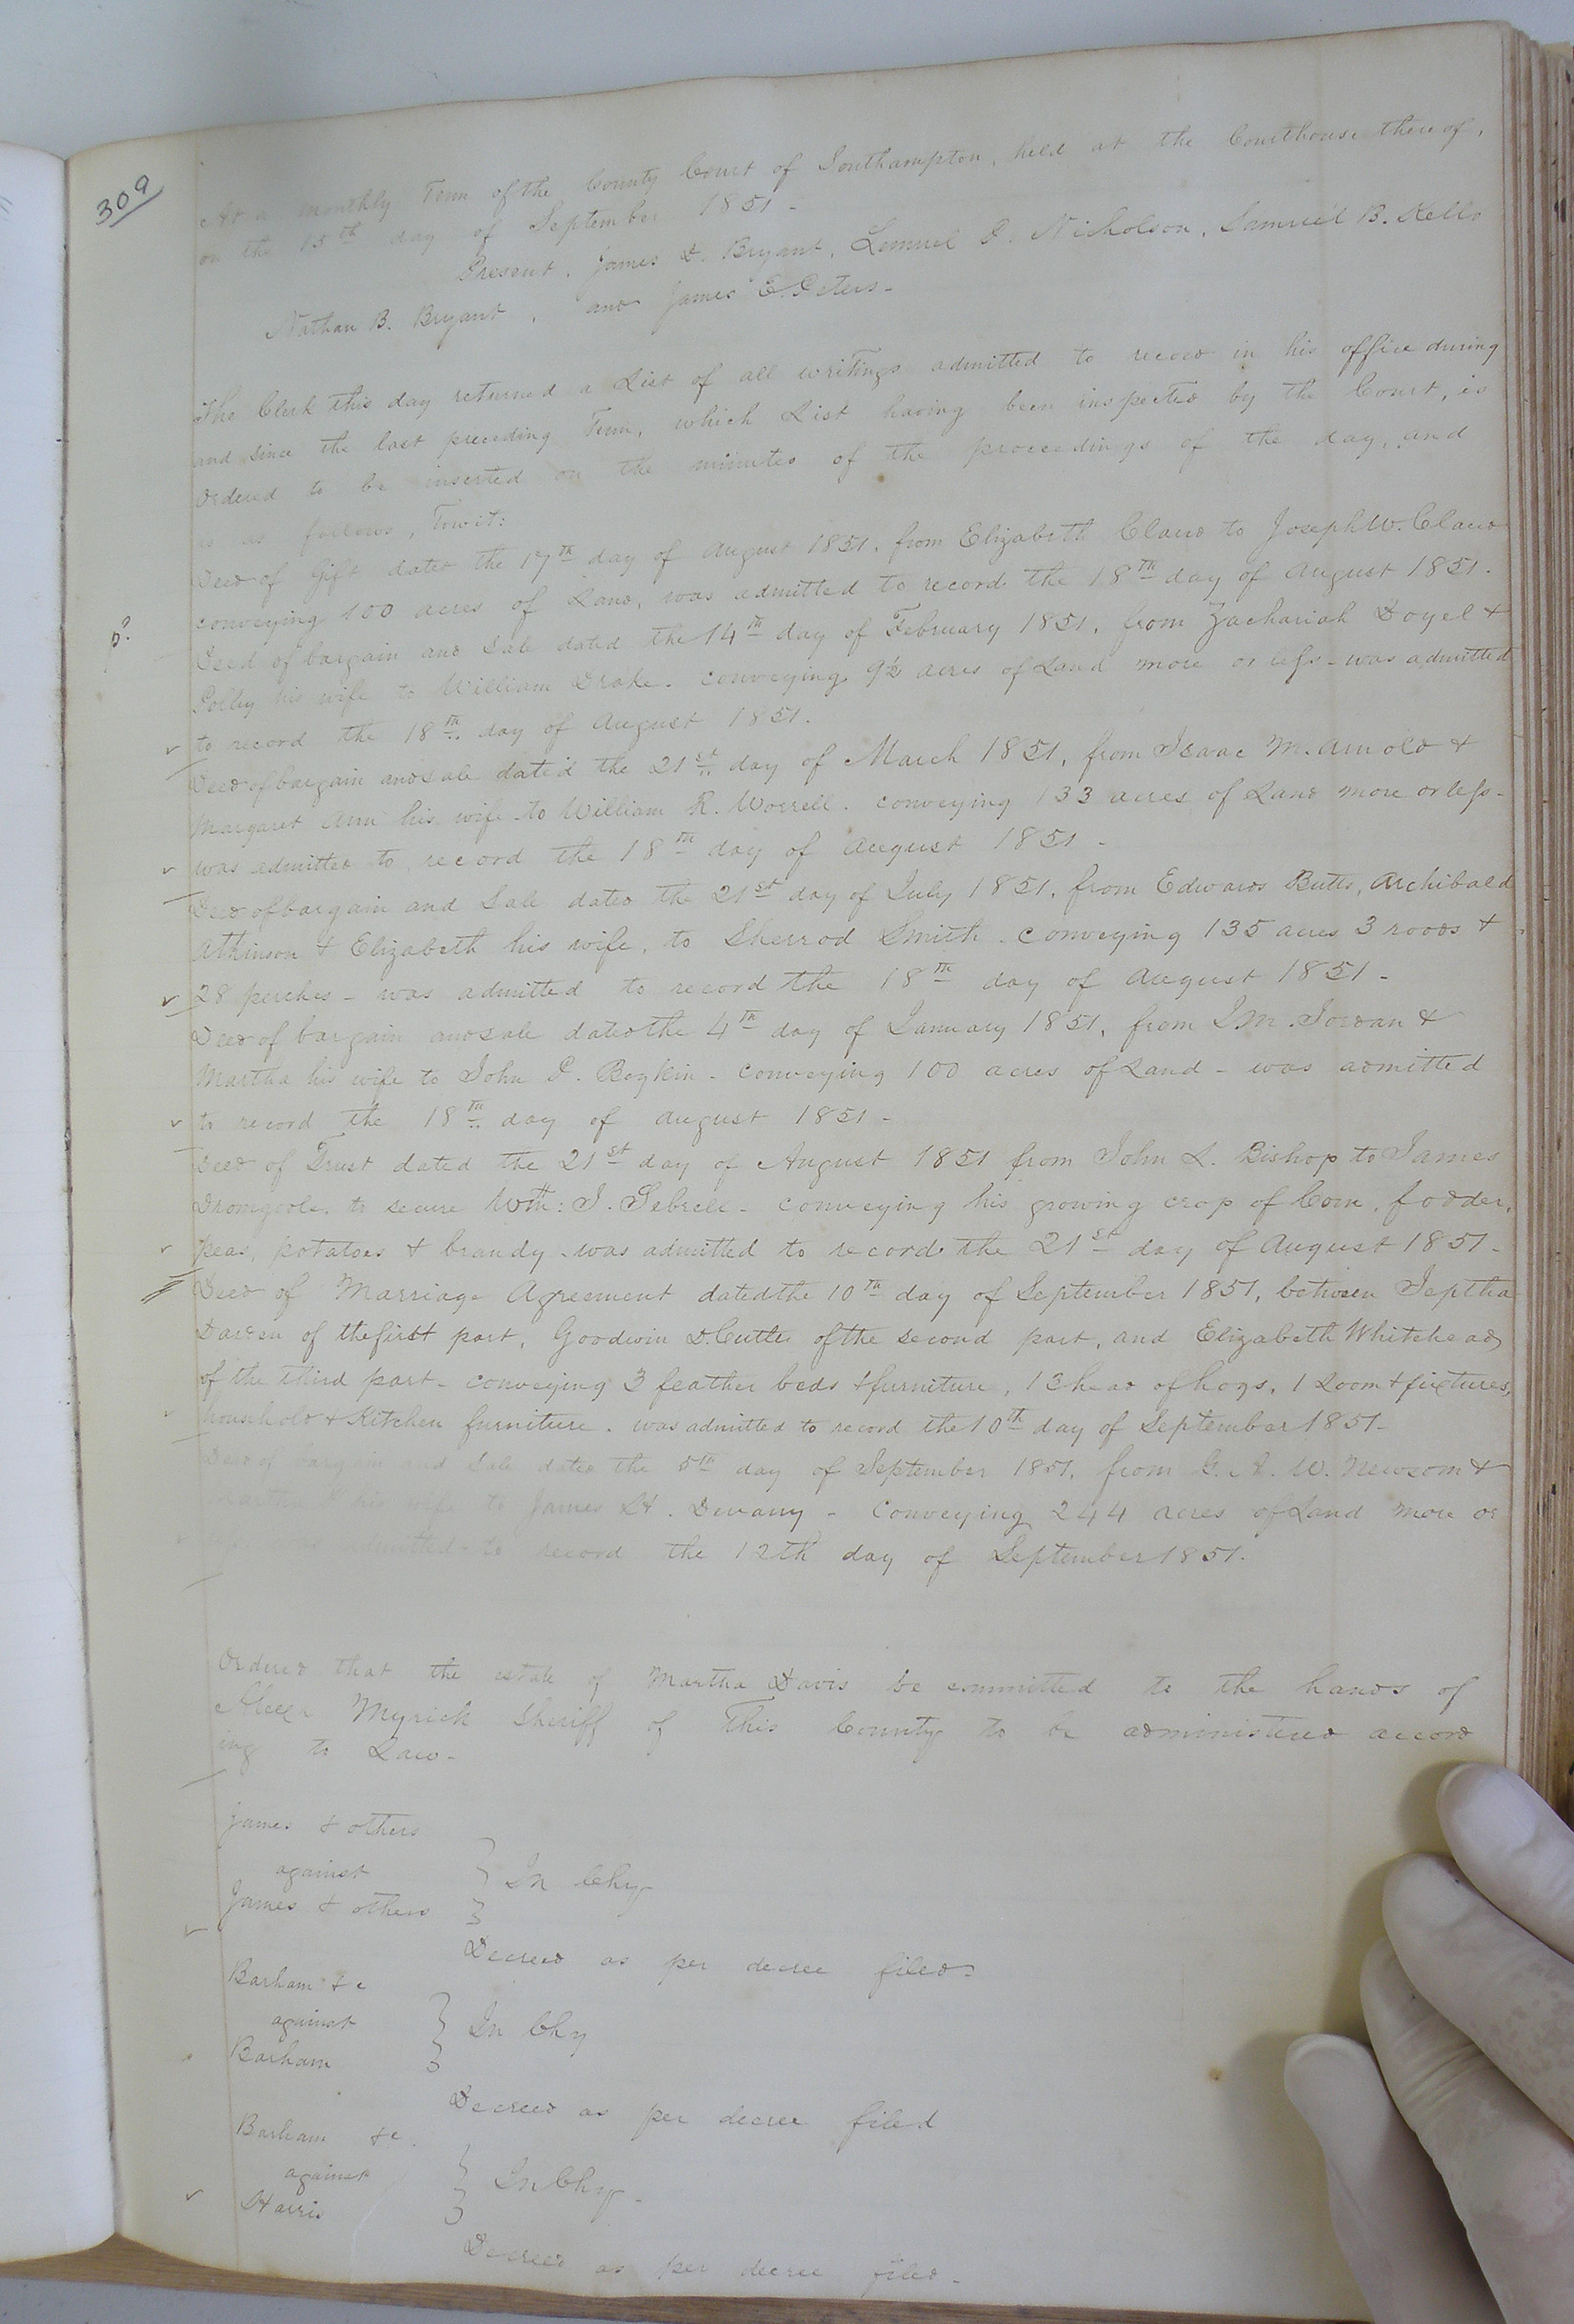 309
At a monthly Term of the County Court of Southampton, held at the Courthouse thereof,
on the 15th day of September 1851 -
Present, James D. Bryant, Lemuel P. Nicholson, Samuel B. Kello
Nathan B. Bryant, and James E. Peters -
The Clerk this day returned a List of all writings admitted to record in his office during
and since the last preceding Term, which List having been inspected by the Court, is
Ordered to be inserted on the minutes of the proceedings of the day, and
is as follows, Towit:
Deed of Gift dated the 17th day of August 1851, from Elizabeth Claud to Joseph W. Claud
conveying 100 acres of Land, was admitted to record the 18th day of August 1851.
Deed of bargain and Sale dated the 14th day of February 1851, from Zachariah Doyel &
Polley his wife to William Drake. conveying 9½ acres of Land more or less - was admitted
to record the 18th day of August 1851.
Deed of bargain and sale dated the 21st day of March 1851, from Isaac M. Arnold &
Margaret Ann his wife to William R. Worrell. conveying 133 acres of Land more or less -
was admitted to record the 18th day of August 1851 -
Deed of bargain and Sale dated the 21st day of July 1851, from Edward Butts, Archibald
Atkinson & Elizabeth his wife, to Sherrod Smith. conveying 135 acres 3 roods &
28 perches - was admitted to record the 18th day of August 1851 -
Deed of bargain and sale dated the 4th day of January 1851, from J. M. Jordan &
Martha his wife to John P. Boykin - conveying 100 acres of Land - was admitted
to record the 18th day of August 1851 -
Deed of Trust dated the 21st day of August 1851 from John L. Bishop to James
Dromgoole, to secure Wm: J. Sebrell - conveying his growing crop of Corn, fodder,
peas, potatoes & brandy - was admitted to record the 21st day of August 1851 -
Deed of Marriage Agreement dated the 10th day of September 1851, between Jeptha
Darden of the first part, Goodwin D. Cutler of the second part, and Elizabeth Whitehead
of the third part - conveying 3 feather beds & furniture, 13 head of hogs, 1 Loom & fixtures,
household & Kitchen furniture. was admitted to record the 10th day of September 1851 -
Deed of bargain and Sale dated the 5th day of September 1851, from G. A. W. Newsom &
his wife to James H. Devany - Conveying 244 acres of Land more or
less was admitted to record the 12th day of September 1851.
Ordered that the estate of Martha Davis be committed to the hands of
Alexr Myrick Sheriff of this County to be administered accord
ing to Law -
James & others
against } In Chy
James & others
Decreed as per decree filed -
Barham &c
against } In Chy
Barham
Decreed as per decree filed
Barham &c.
against } In Chy -
Harris
Decreed as per decree filed -